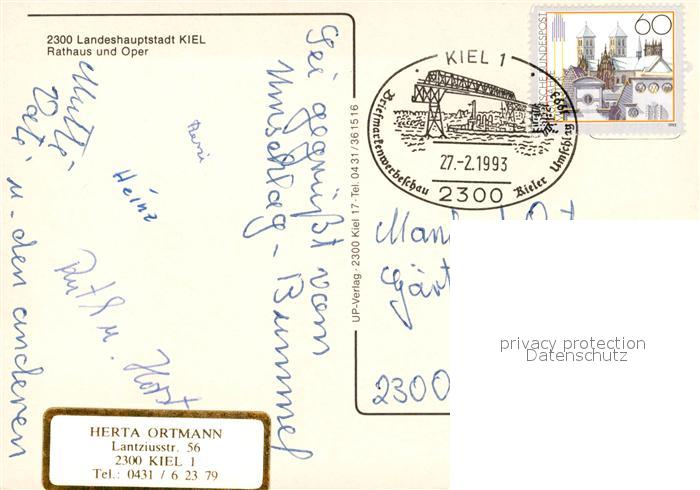 2300 Landeshauptstadt KIEL
Rathaus und Oper
Sei gegrüßt vom
Umschlag-Bummel
Mutti
Vati u. den anderen
Heinz
Ruth u. Horst
HERTA ORTMANN
Lantziusstr. 56
2300 KIEL 1
Tel.: 0431 / 6 23 79
UP-Verlag · 2300 Kiel 17 · Tel. 0431/361516
KIEL 1
Briefmarkenwerbeschau Kieler Umschlag
1993
27.-2.1993
2300
DEUTSCHE BUNDESPOST
60
1993
Gärt
2300
privacy protection
Datenschutz